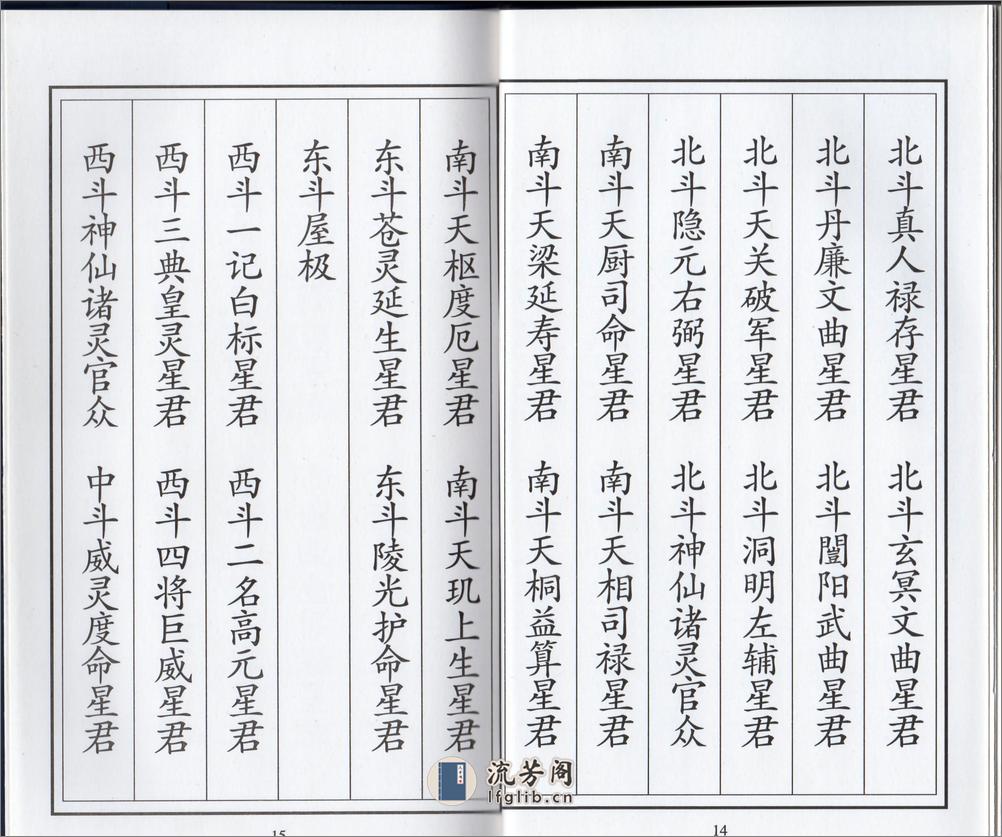 北斗真人禄存星君 北斗玄冥文曲星君
北斗丹廉文曲星君 北斗闓阳武曲星君
北斗天关破军星君 北斗洞明左辅星君
北斗隐元右弼星君 北斗神仙诸灵官众
南斗天厨司命星君 南斗天相司禄星君
南斗天梁延寿星君 南斗天桐益算星君
14
南斗天枢度厄星君 南斗天玑上生星君
东斗苍灵延生星君 东斗陵光护命星君
东斗屋极
西斗一记白标星君 西斗二名高元星君
西斗三典皇灵星君 西斗四将巨威星君
西斗神仙诸灵官众 中斗威灵度命星君
15
流芳阁
lfglib.cn